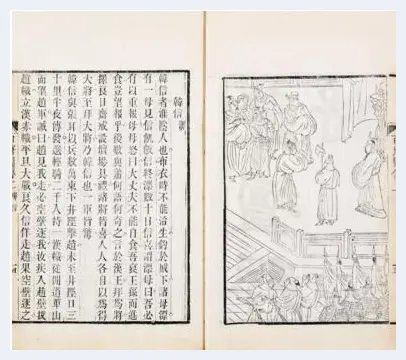 韓信
韓信者淮陰人也布衣時不能治生釣於城下諸母漂
有一母見信飢飯信終漂數十日信喜謂漂母曰吾必
有以重報母母怒曰大丈夫不能自食吾哀王孫而進
食豈望報乎後數與蕭何語何奇之言於漢王拜為將
擇良日齋戒設壇場具禮諸將皆喜人人各自以為得
大將至拜大將乃韓信也一軍皆驚
信與張耳以兵數萬東下井陘擊趙未至井陘口三
十里半夜傳發選輕騎二千人持一漢幟從間道萆山
而望趙軍誡曰趙見我走必空壁逐我汝疾入趙壁拔
趙幟立漢赤幟平旦大戰良久信佯走趙果空壁逐之